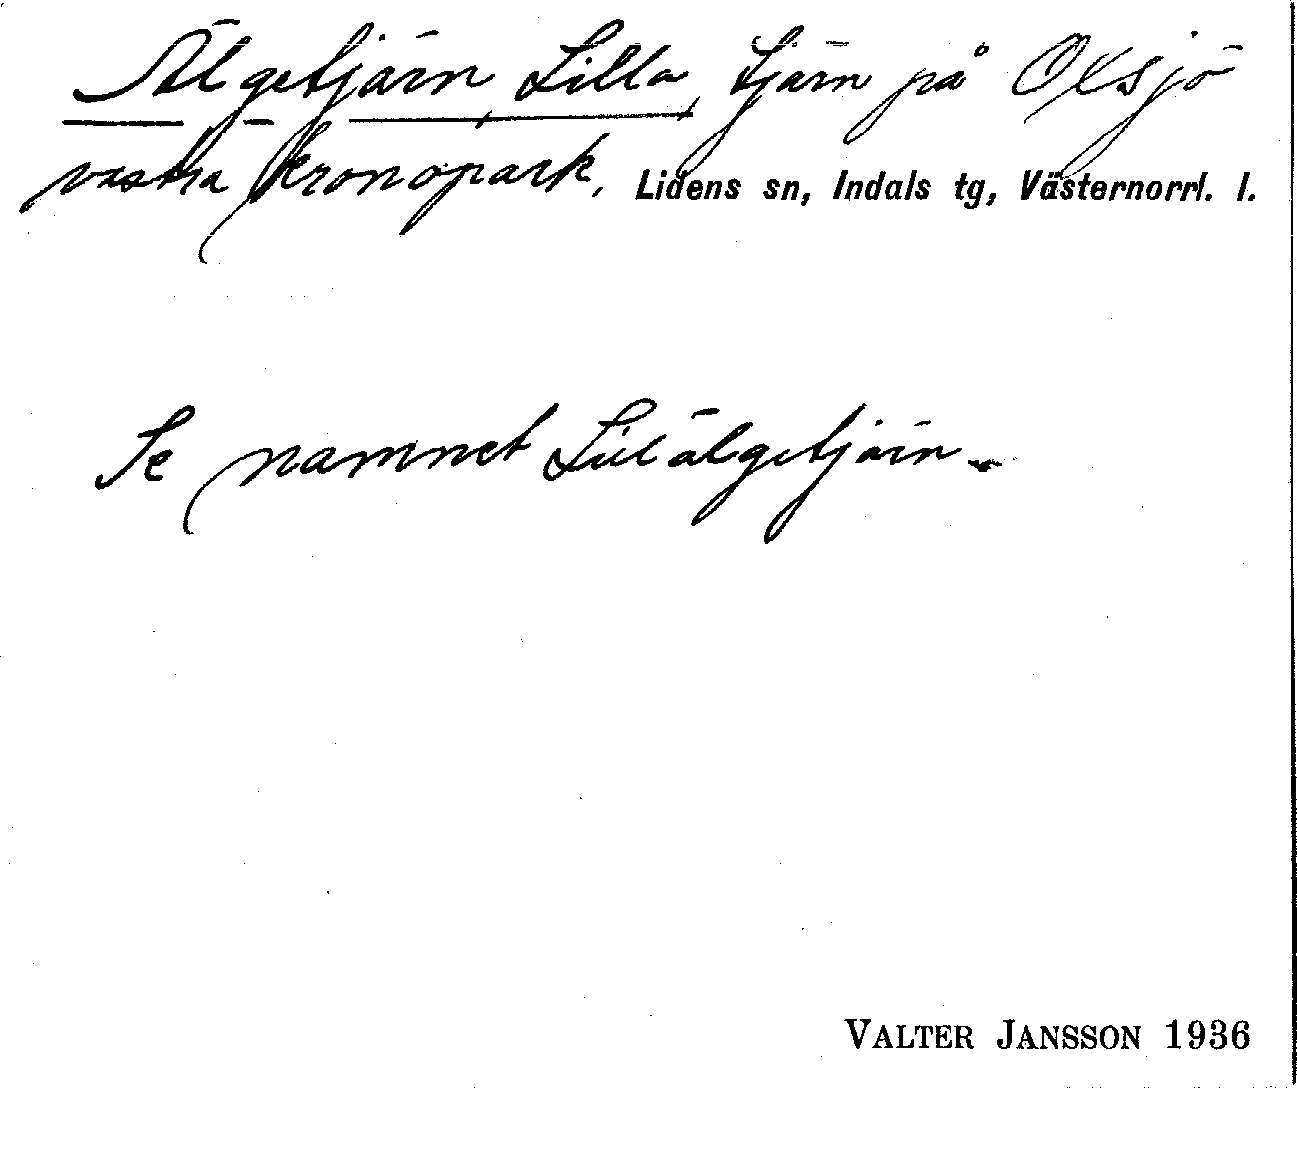 Älgetjärn Lilla, tjärn på Oxsjö
västra kronopark, Lidens sn, Indals tg, Västernorrl. l.
Se namnet Lillälgetjärn
VALTER JANSSON 1936